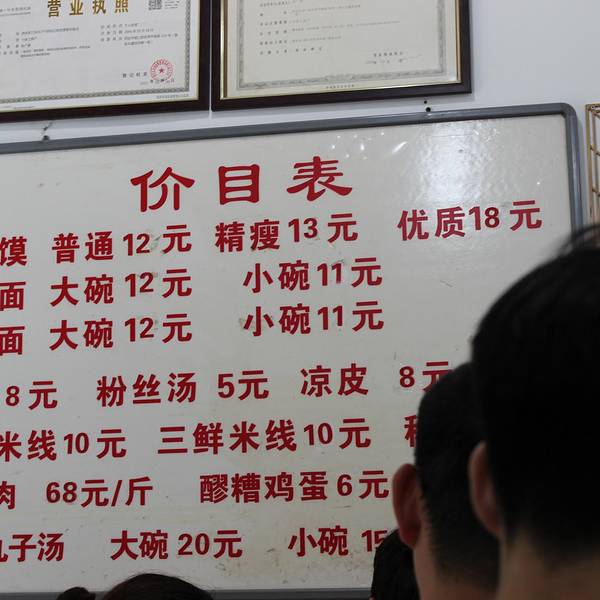 营业执照
价目表
馍 普通12元 精瘦13元 优质18元
面 大碗12元 小碗11元
面 大碗12元 小碗11元
8元 粉丝汤 5元 凉皮 8元
米线10元 三鲜米线10元
肉 68元/斤 醪糟鸡蛋6元
丸子汤 大碗20元 小碗 15